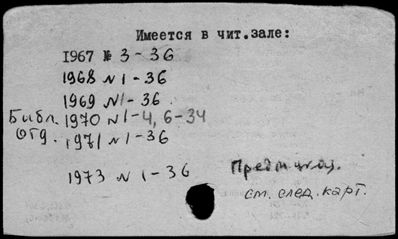 Имеется в чит.зале:
1967 № 3-36
1968 N1-36
1969 N1-36
Библ. 1970 N1-4, 6-34
отд. 1971 N1-36
1973 N1-36
Предм. указ.
см. след. карт.